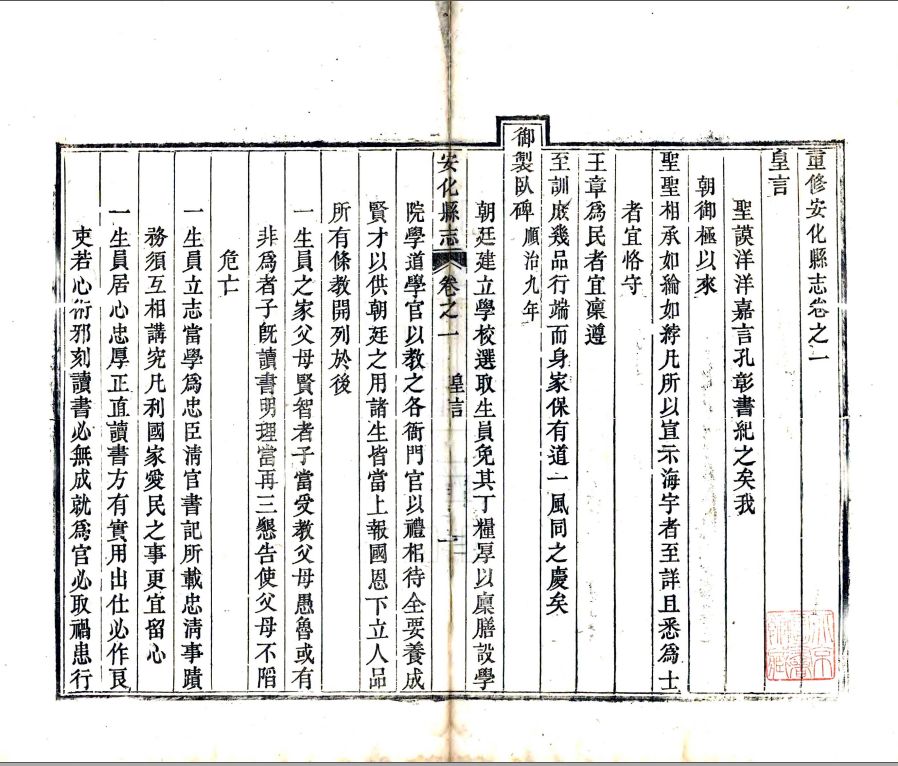 重修安化縣志卷之一
皇言
聖謨洋洋嘉言孔彰書紀之矣我
朝御極以來
聖聖相承如綸如綍凡所以宣示海宇者至詳且悉爲士
者宜恪守
王章爲民者宜凜遵
至訓庶幾品行端而身家保有道一風同之慶矣
御製臥碑順治九年
朝廷建立學校選取生員免其丁糧厚以廩膳設學
安化縣志 卷之一 皇言 一
院學道學官以教之各衙門官以禮相待全要養成
賢才以供朝廷之用諸生皆當上報國恩下立人品
所有條教開列於後
一生員之家父母賢智者子當受教父母愚魯或有
非爲者子旣讀書明理當再三懇告使父母不陷
危亡
一生員立志當學爲忠臣淸官書記所載忠淸事蹟
務須互相講究凡利國家愛民之事更宜留心
一生員居心忠厚正直讀書方有實用出仕必作良
吏若心術邪刻讀書必無成就爲官必取禍患行